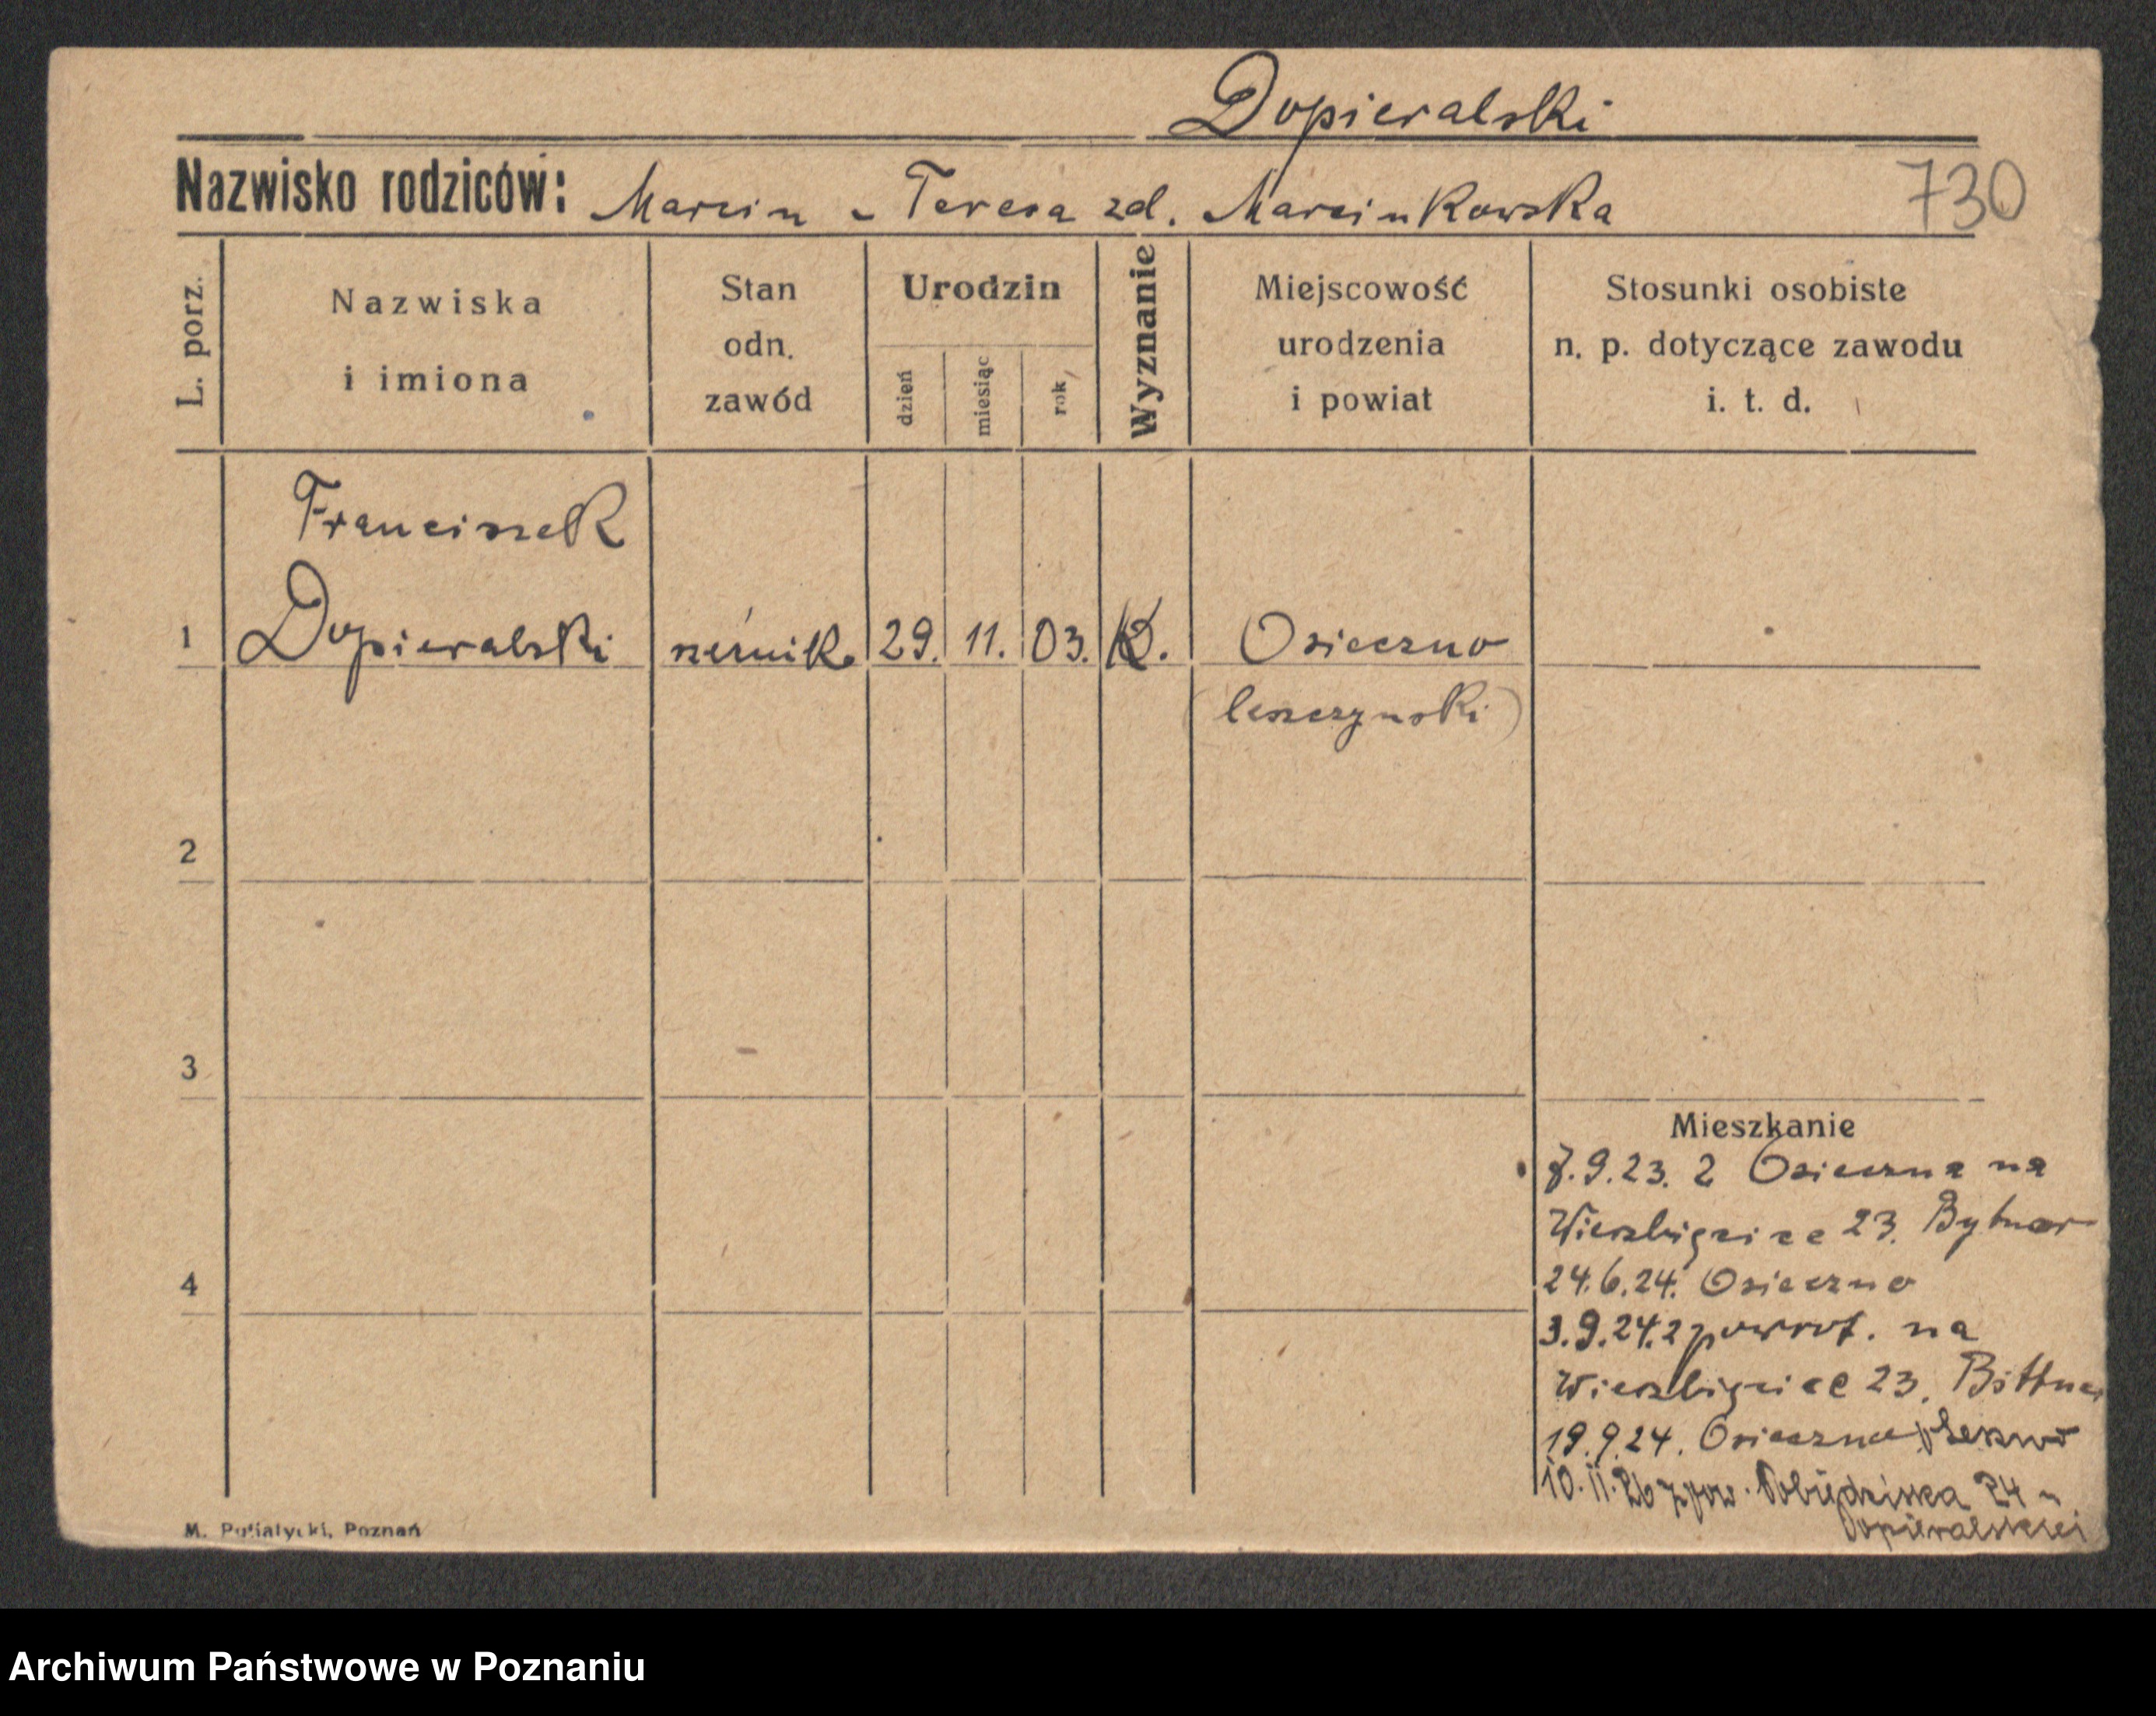 Dopieralski
Nazwisko rodziców: Marcin - Teresa zd. Marcinkowska 730
L. porz.
Nazwiska i imiona
Stan odn. zawód
Urodzin
dzień
miesiąc
rok
Wyznanie
Miejscowość urodzenia i powiat
Stosunki osobiste n. p. dotyczące zawodu i. t. d.
Franciszek
1 Dopieralski 29. 11. 03. K. Osieczno
(leszczynski)
2
3
Mieszkanie
7.9.23. z Osieczna na
Wierzbięcice 23. Bytner
4
24.6.24. Osieczno
3.9.24. z powrot. na
Wierzbięcice 23. Bittner
19.9.24. Osieczno
10.11.26 z pow. Pobiedziska 24 u
Dopieralskiej
M. Putiatycki, Poznań
Archiwum Państwowe w Poznaniu